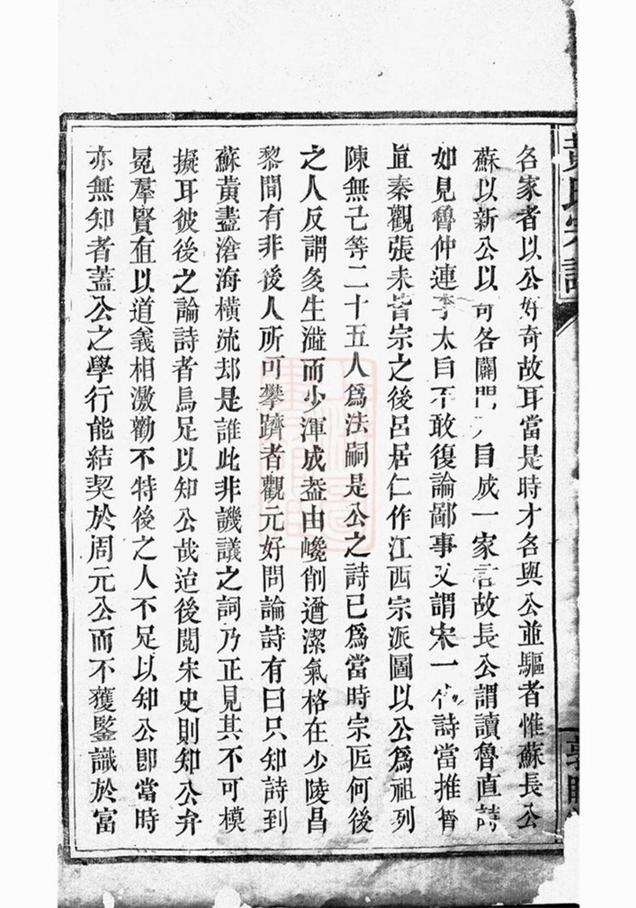 黃氏宗譜
各家者以公好奇故耳當是時才各與公並驅者惟蘇長公
蘇以新公以奇各闢門戶自成一家言故長公謂讀魯直詩
如見魯仲連李太白不敢復論鄙事又謂宋一代詩當推魯
直秦觀張耒皆宗之後呂居仁作江西宗派圖以公爲祖列
陳無己等二十五人爲法嗣是公之詩已爲當時宗匠何後
之人反謂多生澁而少渾成葢由巉削遒潔氣格在少陵昌
黎間有非後人所可攀躋者觀元好問論詩有曰只知詩到
蘇黃盡滄海橫流却是誰此非譏議之詞乃正見其不可模
擬耳彼後之論詩者烏足以知公哉迨後閱宋史則知公弁
冕羣賢直以道義相激勸不特後之人不足以知公卽當時
亦無知者葢公之學行能結契於周元公而不獲鑒識於富